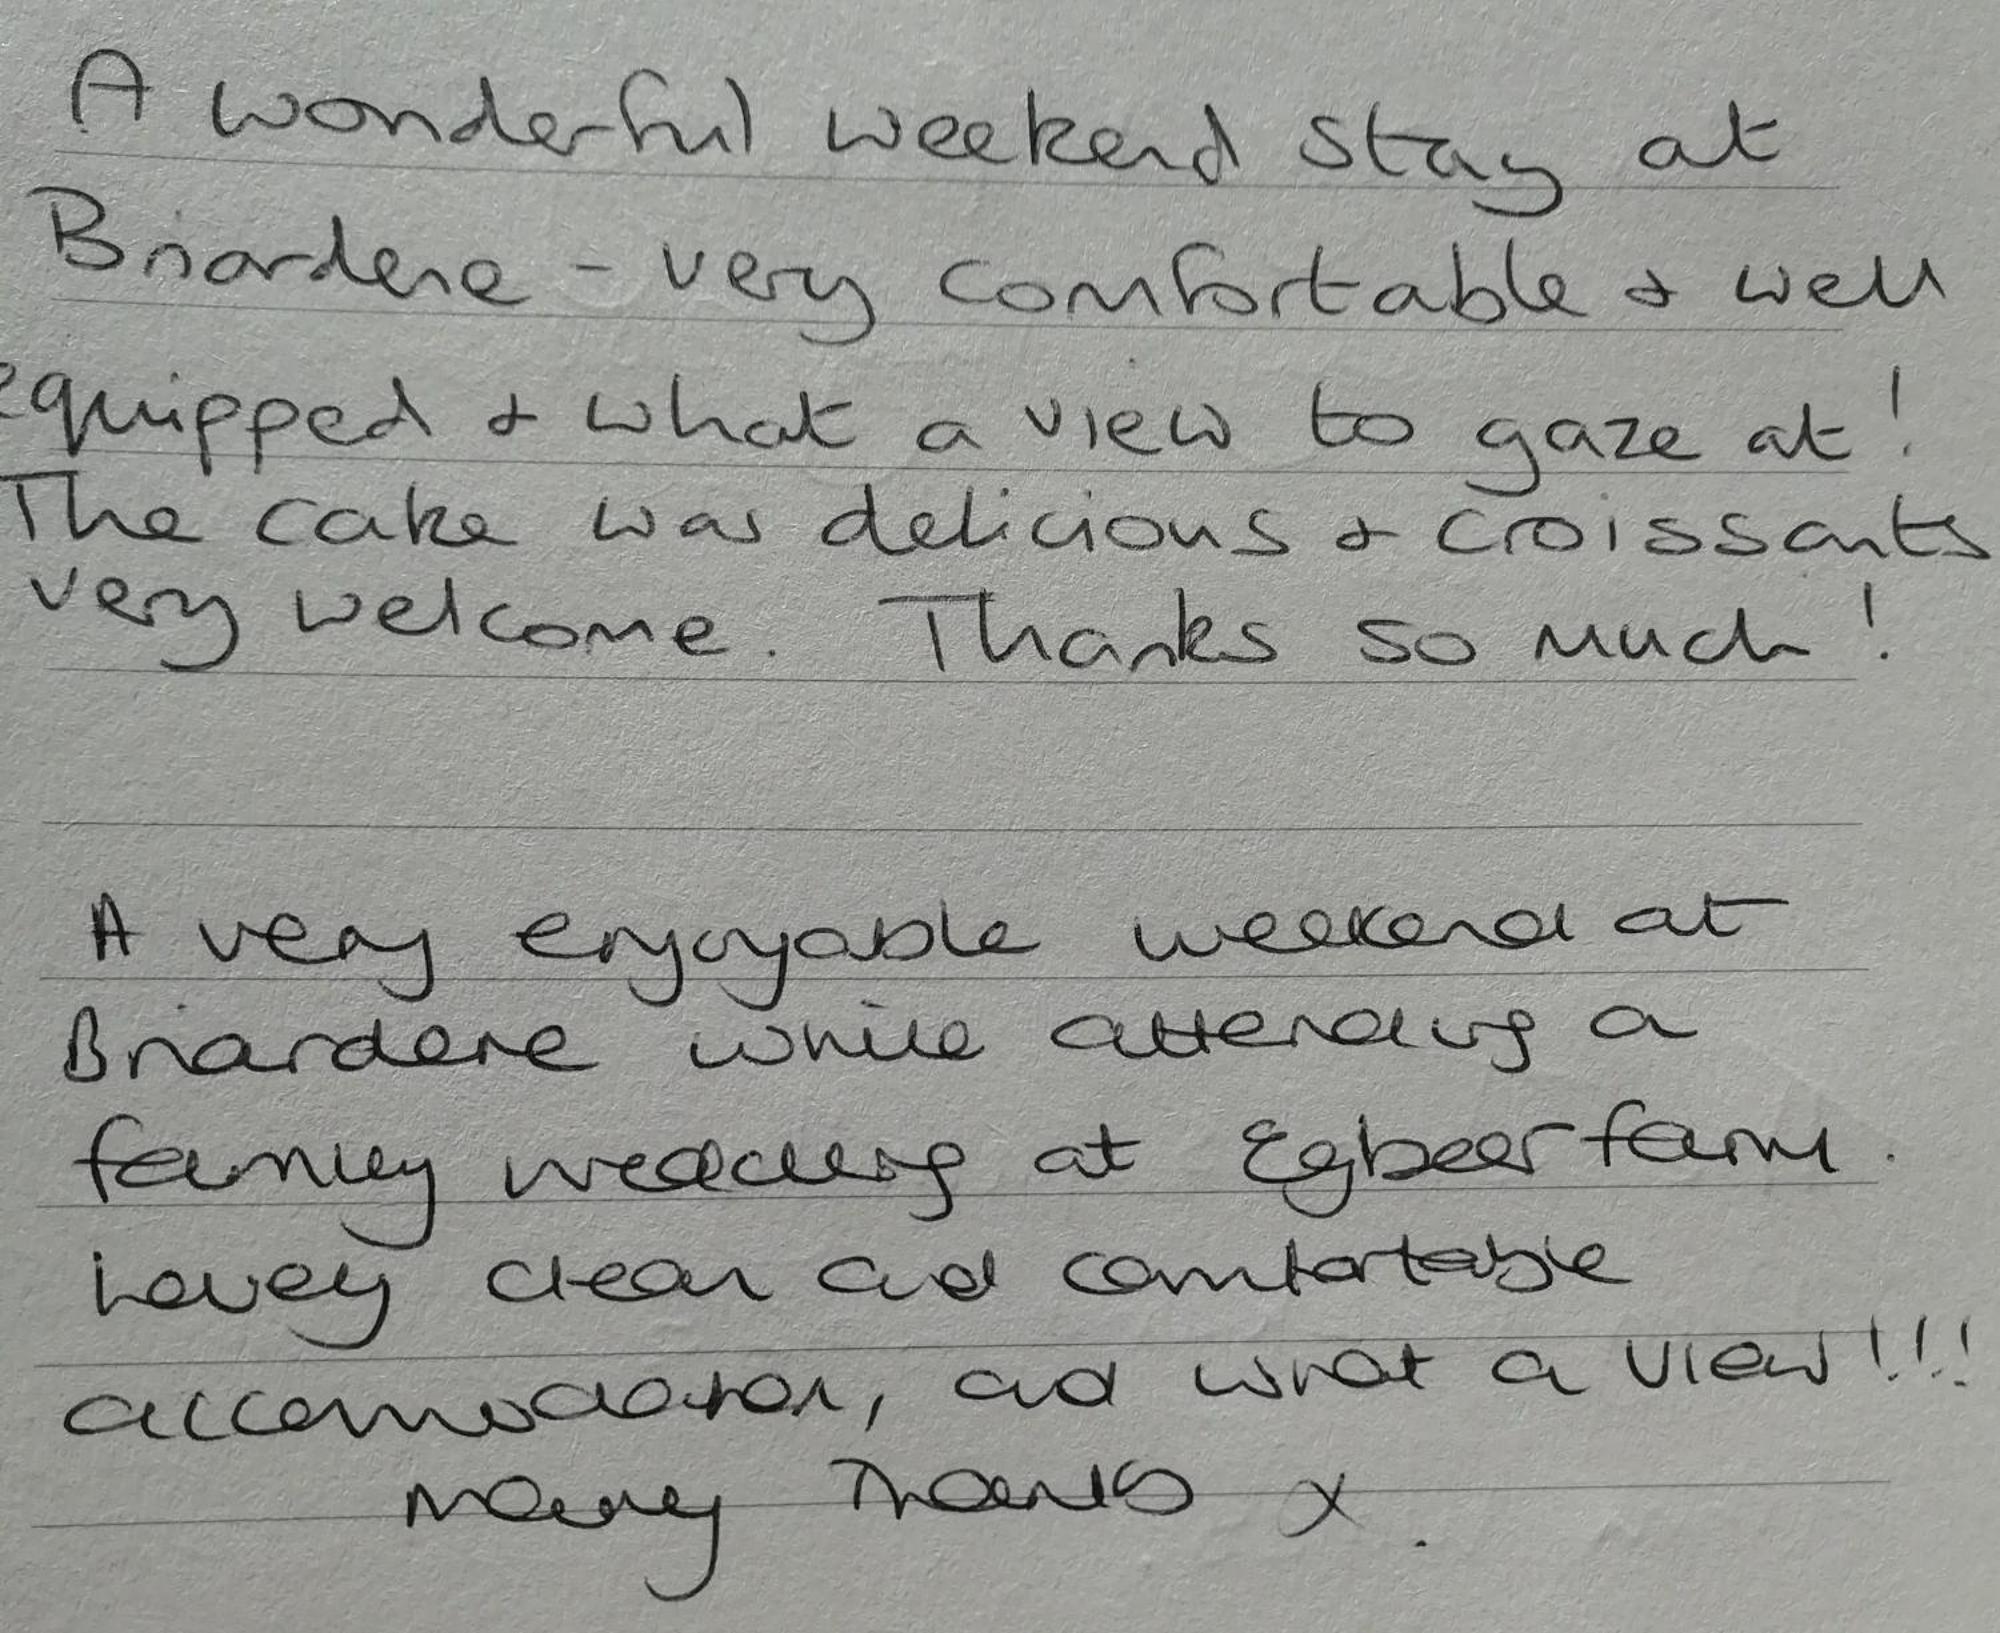 A wonderful weekend stay at
Briardene - very comfortable & well
equipped & what a view to gaze at!
The cake was delicious & croissants
very welcome. Thanks so much!
A very enjoyable weekend at
Briardene while attending a
family wedding at Egbeer farm.
Lovely clean and comfortable
accomodation, and what a view!!!
Many Thanks x.